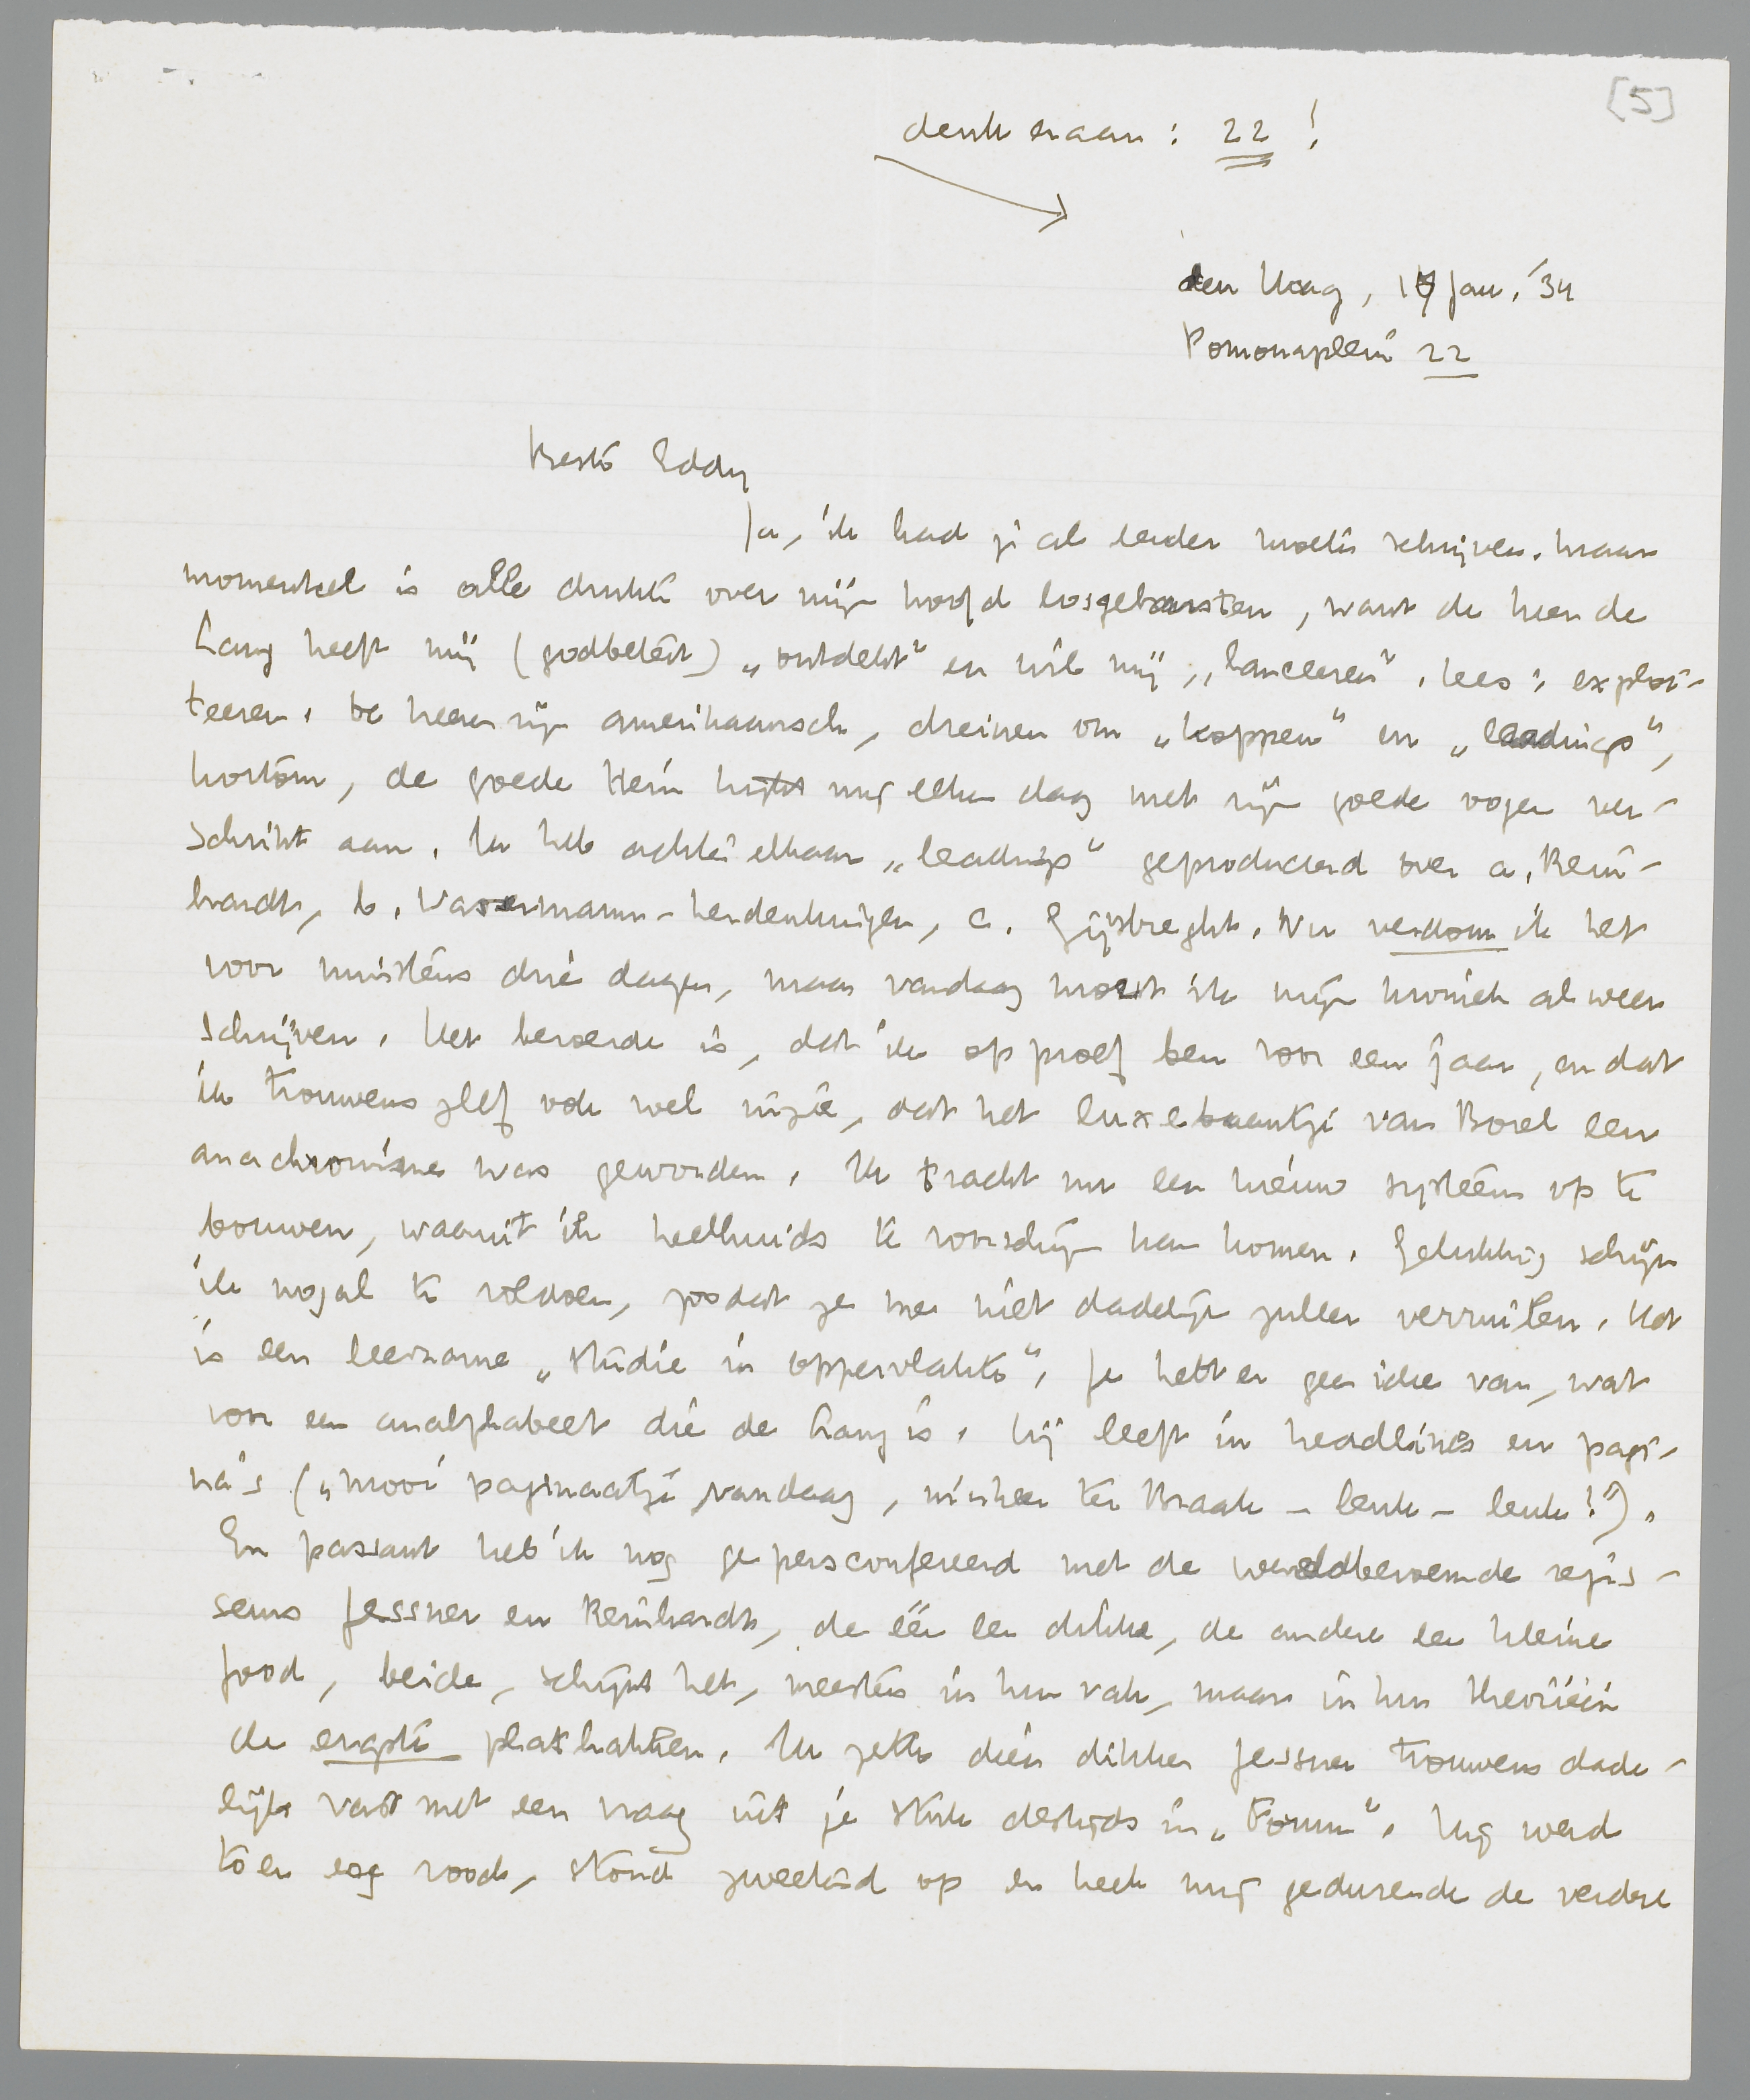 [5]
denk eraan: 22!
den Haag, 17 Jan. '34
Pomonaplein 22
Beste Eddy
Ja, ik had je al eerder moeten schrijven. Maar
momenteel is alle drukte over mijn hoofd losgebarsten, want de heer de
Lang heeft mij (godbetert) „ontdekt" en wil mij „lanceeren", lees: exploi-
teeren. De heeren zijn amerikaansch, dreinen om „koppen" en „leadings",
kortom, de goede Hein kijkt mij elken dag met zijn goede oogen ver-
schrikt aan. Ik heb achter elkaar „leadings" geproduceerd over a. Rein-
hardt, b. Wassermann-herdenkingen, c. Gijsbreght. Nu verdom ik het
voor minstens drie dagen, maar vandaag moest ik mijn kroniek alweer
schrijven. Het beroerde is, dat ik op proef ben voor een jaar, en dat
ik trouwens zelf ook wel inzie, dat het luxebaantje van Borel een
anachronisme was geworden. Ik tracht nu een nieuw systeem op te
bouwen, waaruit ik heelhuids te voorschijn kan komen. Gelukkig schijn
ik nogal te voldoen, zoodat ze me niet dadelijk zullen verruilen. Het
is een leerzame „studie in oppervlakte". Je hebt er geen idee van, wat
voor een analphabeet die de Lang is. Hij leeft in headlines en pagi-
na's („mooi paginaatje vandaag, mijnheer ter Braak – leuk – leuk!").
En passant heb ik nog gepersconfereerd met de wereldberoemde regis-
seurs Jessner en Reinhardt, de één een dikke, de andere een kleine
Jood, beide, schijnt het, meesters in hun vak, maar in hun theorieën
de ergste plathakken. Ik zette dien dikken Jessner trouwens dade-
lijk vast met een vraag uit je stuk destijds in „Forum". Hij werd
toen erg rood, stond zweetend op en keek mij gedurende de verdere